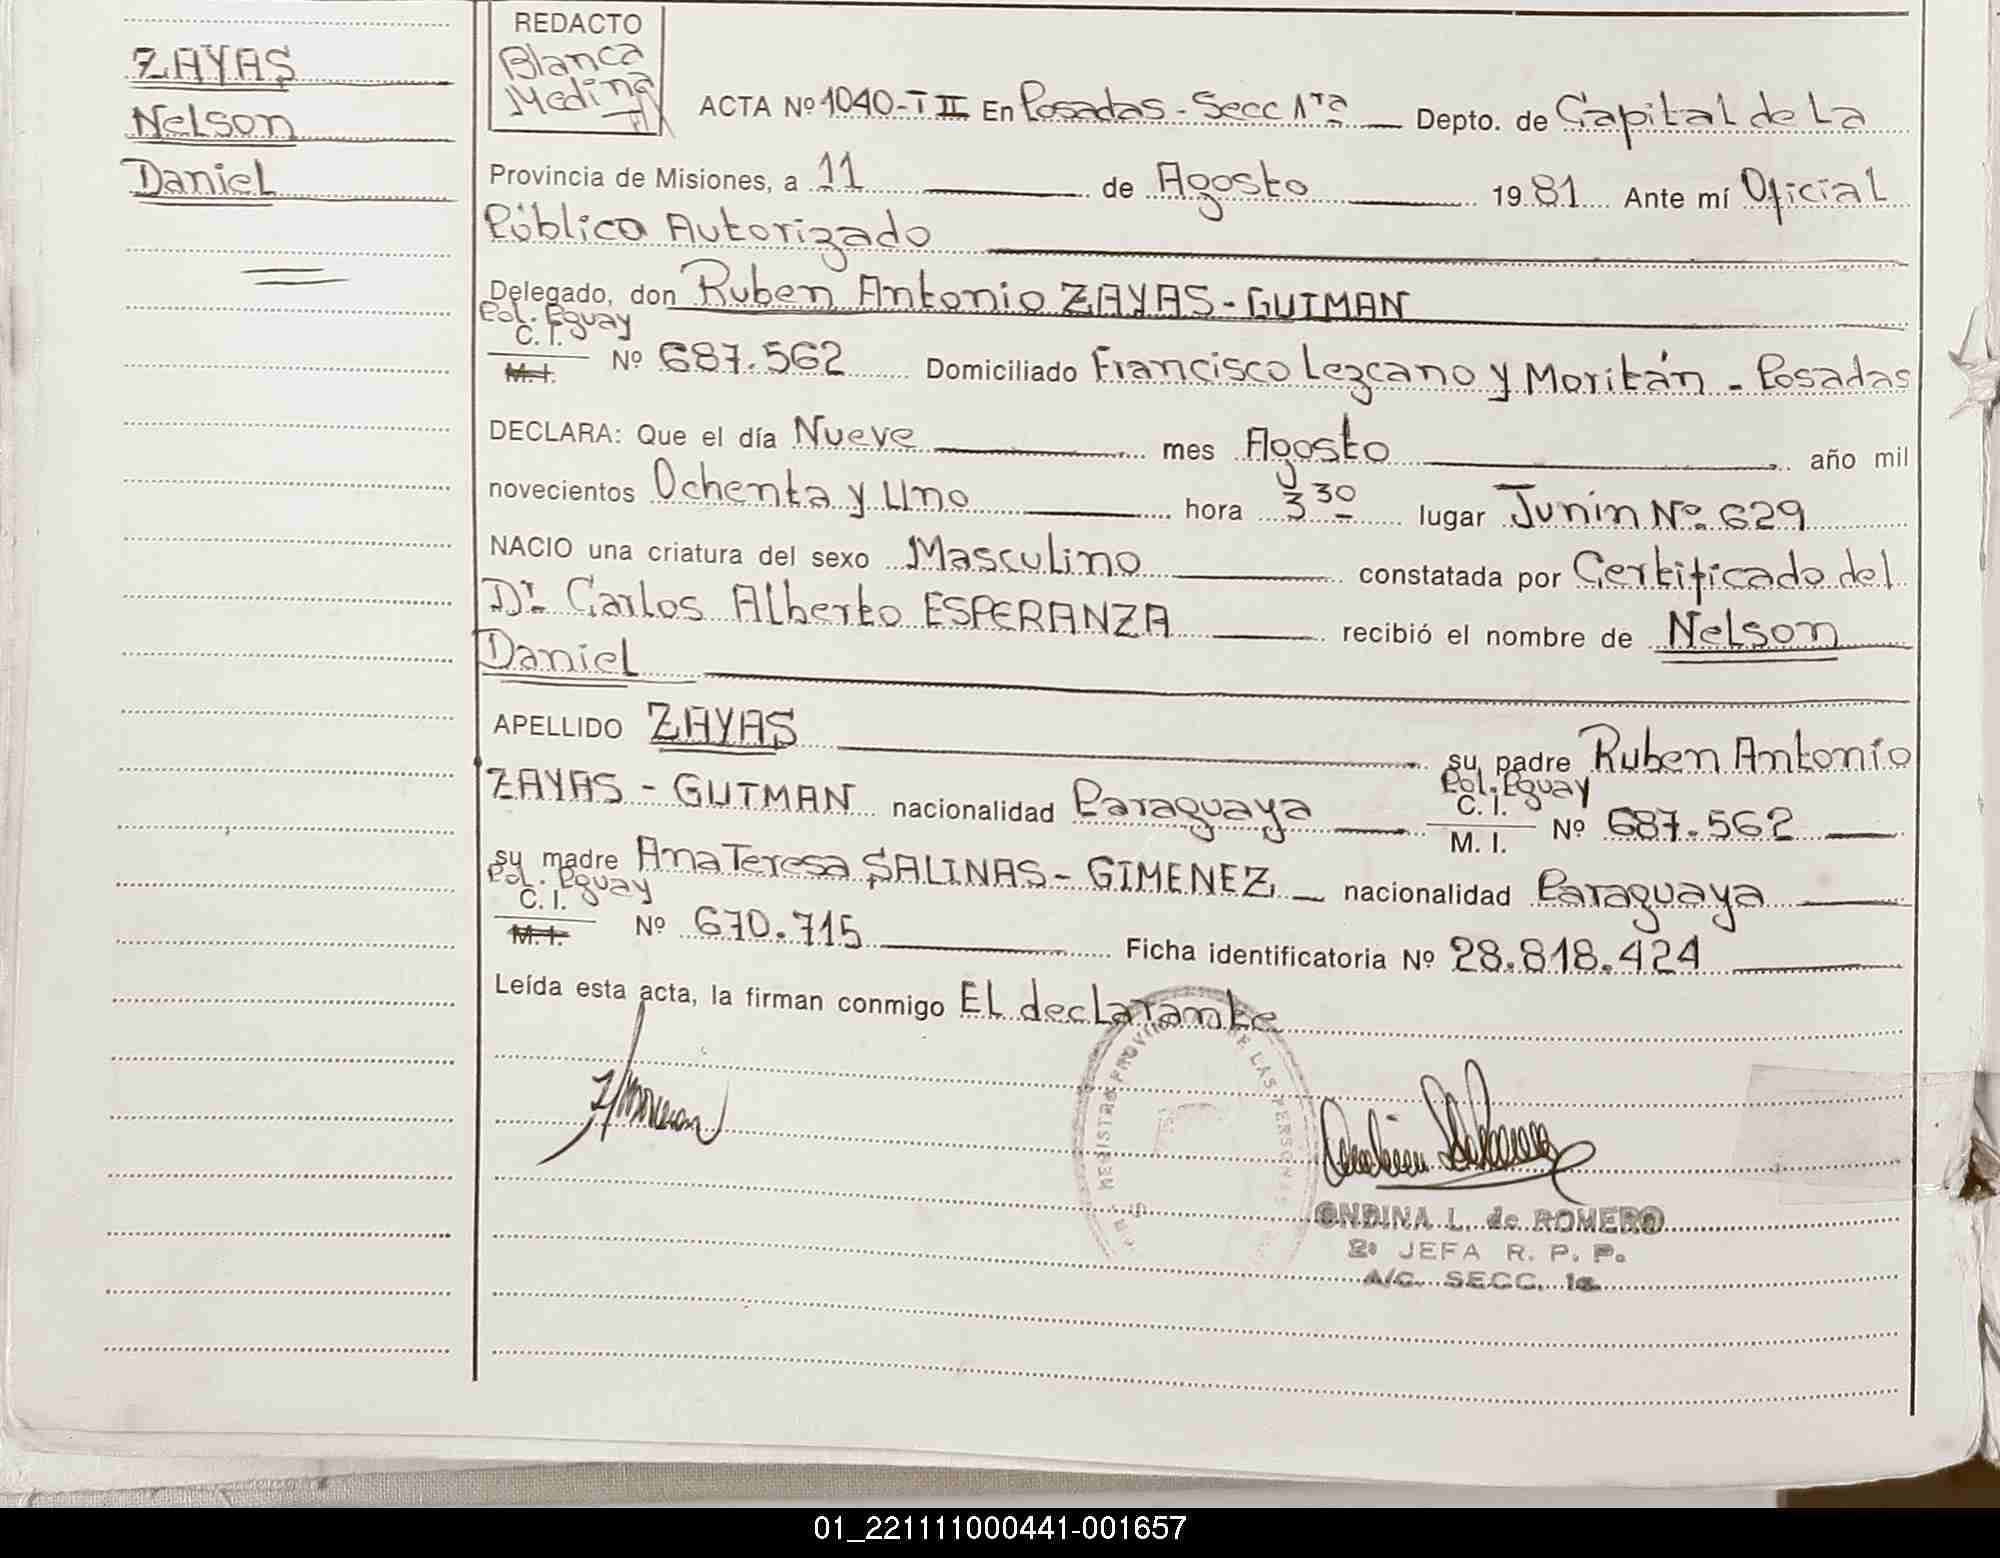 ZAYAS
Nelson
Daniel
REDACTO
Blanca
Medina
ACTA Nº 1040-T II En Posadas - Secc 1ra Depto. de Capital de La
Provincia de Misiones, a 11 de Agosto 1981 Ante mí Oficial
Público Autorizado
Delegado, don Ruben Antonio ZAYAS - GUTMAN
Pol. Pguay
C. I.
M. I. Nº 687.562 Domiciliado Francisco Lezcano y Moritán - Posadas
DECLARA: Que el día Nueve mes Agosto año mil
novecientos Ochenta y Uno hora 3 30 lugar Junín Nº 629
NACIO una criatura del sexo Masculino constatada por Certificado del
Dr. Carlos Alberto ESPERANZA recibió el nombre de Nelson
Daniel
APELLIDO ZAYAS su padre Ruben Antonio
Pol. Pguay
ZAYAS - GUTMAN nacionalidad Paraguaya C. I.
M. I. Nº 687.562
su madre Ana Teresa SALINAS - GIMENEZ nacionalidad Paraguaya
Pol. Pguay
C. I.
M. I. Nº 670.715 Ficha identificatoria Nº 28.818.424
Leída esta acta, la firman conmigo El declarante
REGISTRO PROVIN DE LAS PERSONAS
ONDINA L. de ROMERO
2º JEFA R. P. P.
A/C. SECC. 1a.
01_221111000441-001657